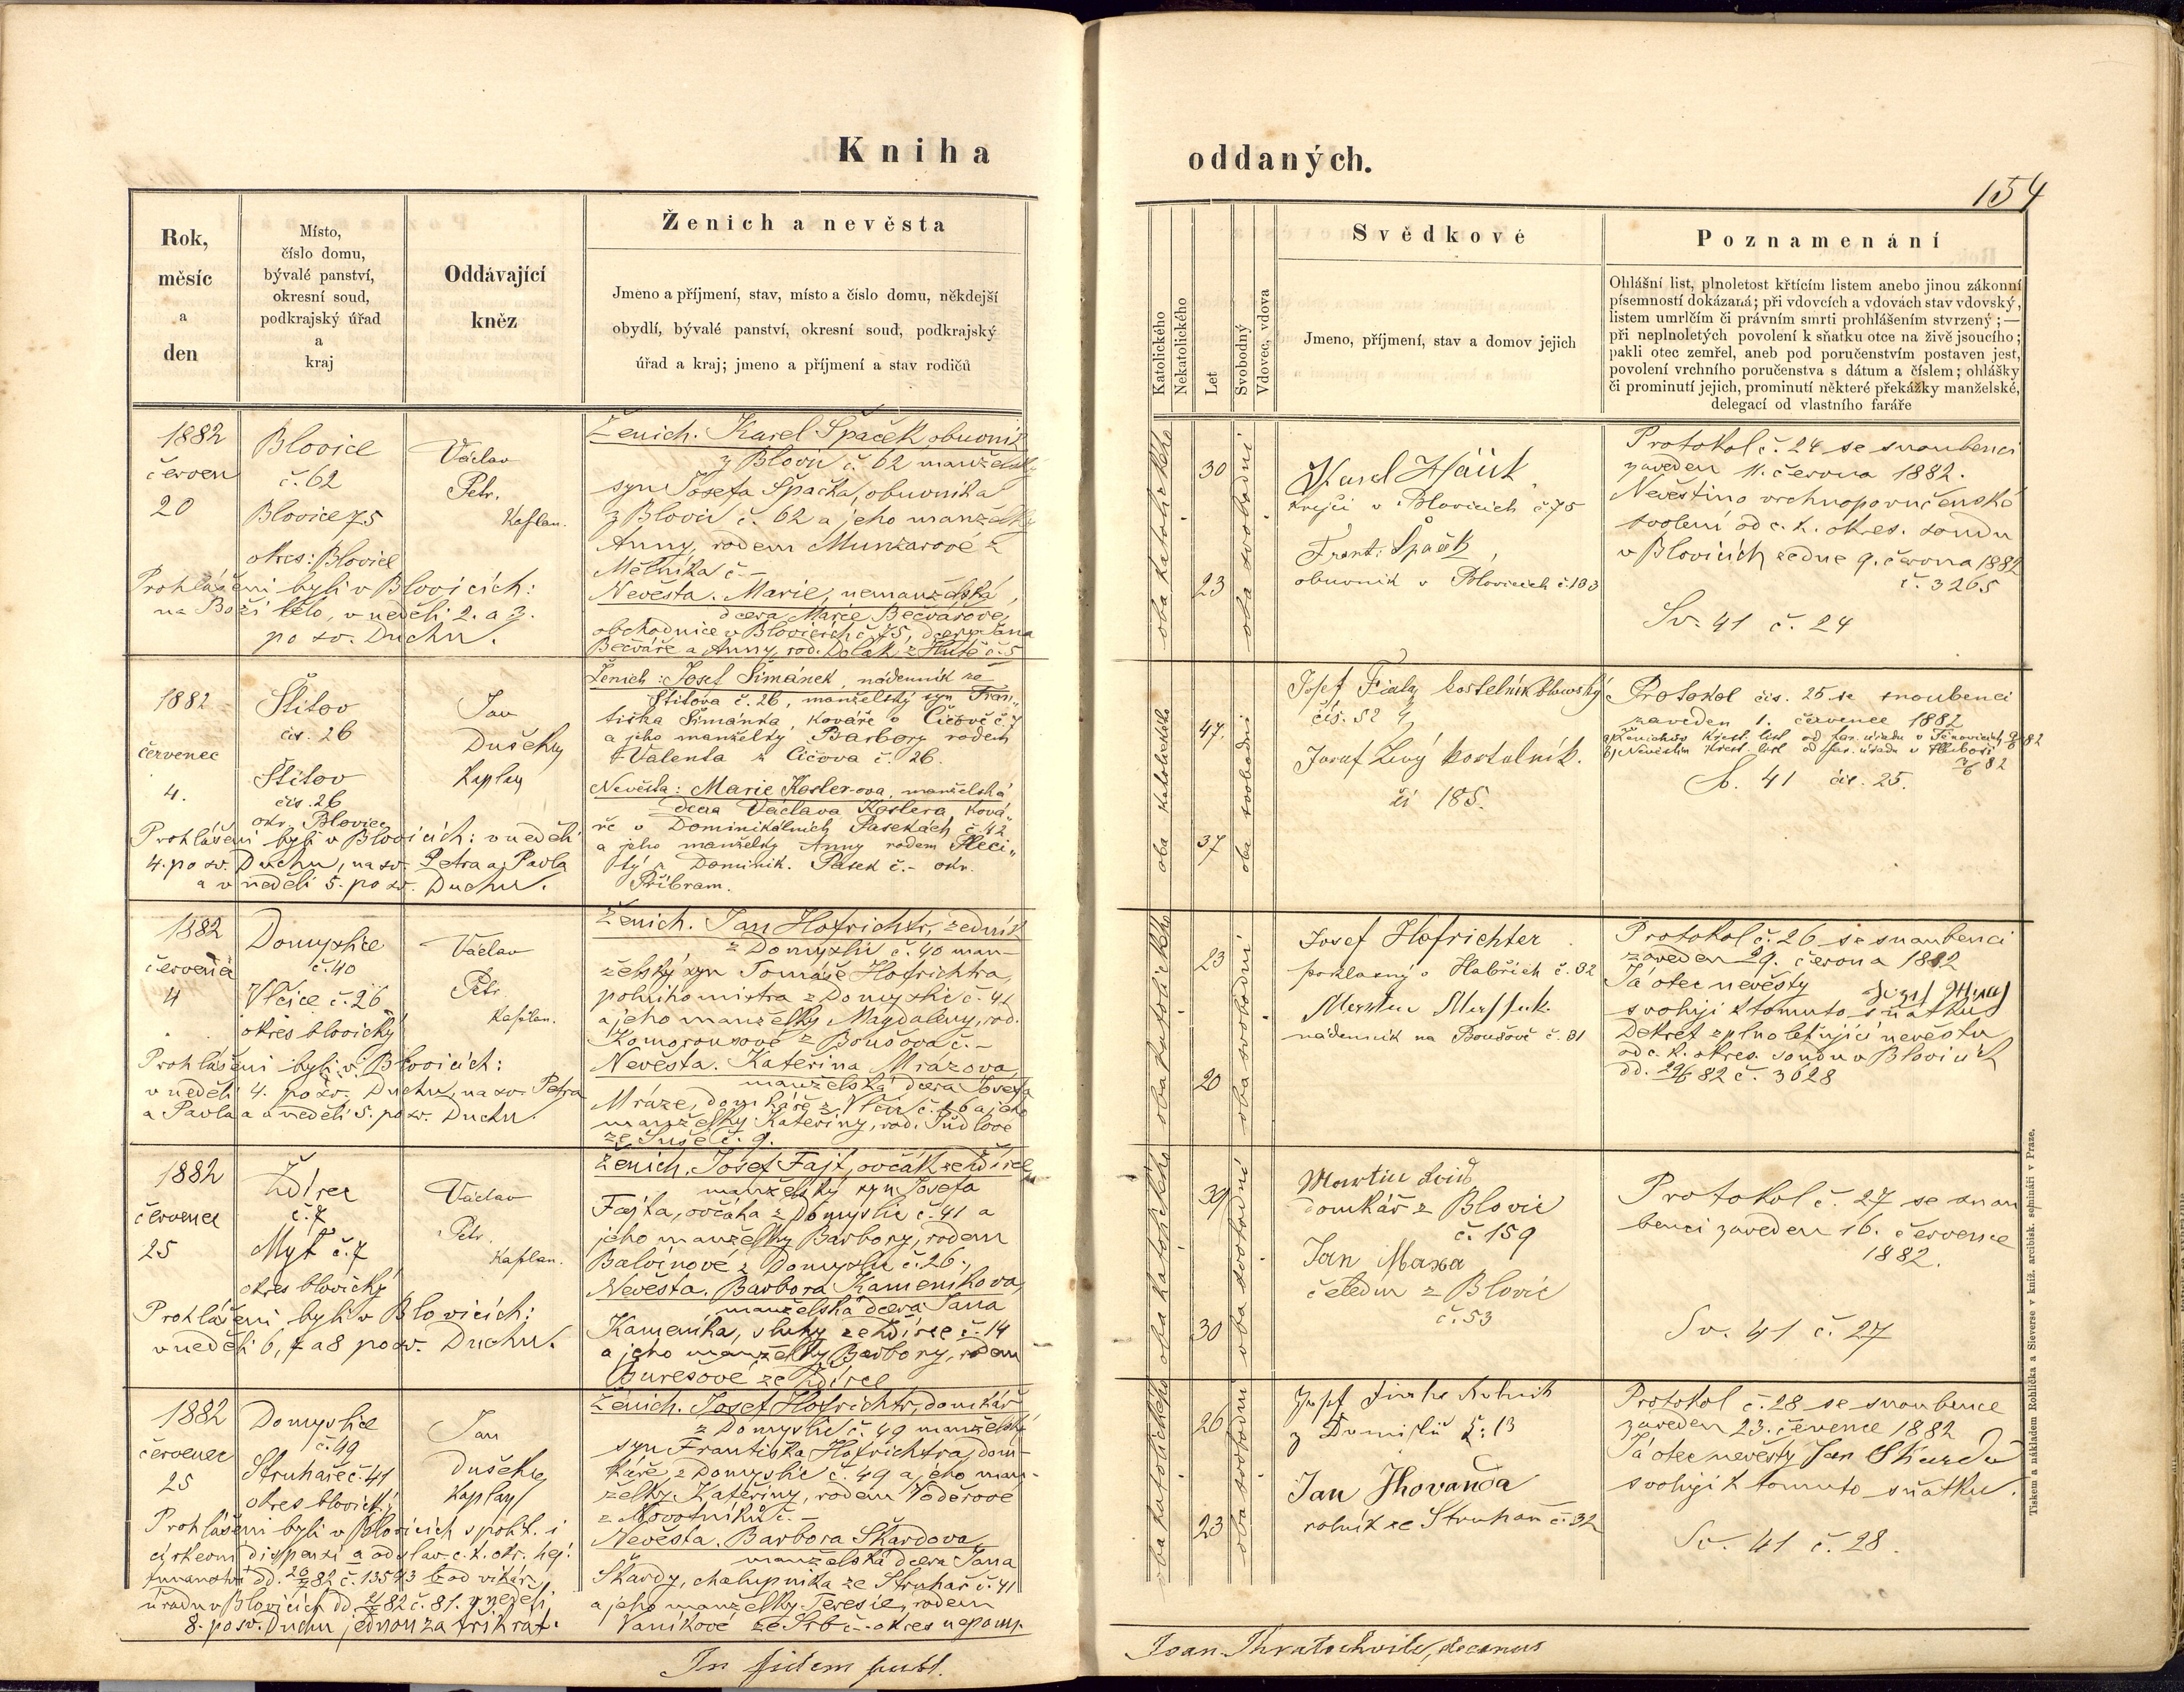 Kniha
oddaných.
154
Rok,
měsíc
a
den
Místo,
číslo domu,
bývalé panství,
okresní soud,
podkrajský úřad
a
kraj
Oddávající
kněz
Ženich a nevěsta
Jmeno a příjmení, stav, místo a číslo domu, někdejší
obydlí, bývalé panství, okresní soud, podkrajský
úřad a kraj; jmeno a příjmení a stav rodičů
Katolického
Nekatolického
Let
Svobodný
Vdovec, vdova
Svědkové
Jmeno, příjmení, stav a domov jejich
Poznamenání
Ohlášní list, plnoletost křtícím listem anebo jinou zákonní
písemností dokázaná; při vdovcích a vdovách stav vdovský,
listem umrlčím či právním smrti prohlášením stvrzený; —
při neplnoletých povolení k sňatku otce na živě jsoucího;
pakli otec zemřel, aneb pod poručenstvím postaven jest,
povolení vrchního poručenstva s dátum a číslem; ohlášky
či prominutí jejich, prominutí některé překážky manželské,
delegací od vlastního faráře
1882
červen
20
Blovice
č. 62
Blovice 75
okres: Blovice
Prohlášeni byli v Blovicích:
na Boží tělo, v neděli 2. a 3.
po sv. Duchu.
Václav
Petr.
Kaplan.
Ženich. Karel Špaček, obuvník
z Blovic č. 62 manželský
syn Josefa Špačka, obuvníka
z Blovic č. 62 a jeho manželky
Anny, rodem Munzarové z
Mělníka č. –
Nevěsta. Marie, nemanželská
dcera Marie Bečvářové,
obchodnice v Blovicích č. 75, dcery Jana
Bečváře a Anny, rod. Dolak z Hutě č. 5
oba katolického
30
23
oba svobodni
Karel Háúk
krejčí v Blovicích č 75
Frant: Špaček,
obuvník v Blovicích č. 103
Protokol č. 24 se snoubenci
zaveden 11. června 1882.
Nevěstino vrchnoporučenské
svolení od c. k. okres. soudu
v Blovicích ze dne 9. června 1882
č. 3265
Sv. 41 č. 24
1882
červenec
4.
Štítov
čís. 26
Štítov
čís. 26
okr. Blovice
Prohlášeni byli v Blovicích: v neděli
4. po sv. Duchu, na sv. Petra a Pavla
a v neděli 5. po sv. Duchu.
Jan
Dušek
Kaplan
Ženich: Josef Šimánek, nádenník ze
Štítova č. 26, manželský syn Fran„
tiška Šimánka, kováře v Čičově č. 7
a jeho manželky Barbory rodem
Valenta z Čičova č. 26.
Nevěsta: Marie Kosler-ova, manželská
dcera Václava Koslera ková„
ře v Dominikálních Pasekách č. 42
a jeho manželky Anny rodem Pleci„
tý z Dominik. Pasek č. – okr.
Příbram.
oba katolického
47.
37
oba svobodni
Josef Fiala kostelník blovský
čís. 52
Josef Levý kostelník.
či 185.
Protokol čís. 25 se snoubenci
zaveden 1. července 1882
S. 41 čís. 25.
1882
července
4
Domyslice
č. 40
Vlčice č. 26
okres blovický
Prohlášeni byli v Blovicích:
v neděli 4. po sv. Duchu, na sv. Petra
a Pavla a v neděli 5. po sv. Duchu.
Václav
Petr
Kaplan.
Ženich. Jan Hofrichtr, zedník
z Domyslic č. 40 man-
želský syn Tomáše Hofrichtra,
polního mistra z Domyslic č. 41
a jeho manželky Magdaleny, rod.
Komorousové z Boušova č. –
Nevěsta. Kateřina Mrázova
manželská dcera Josefa
Mráze, domkáře z Vlčic č. 26 a jeho
manželky Kateřiny, rod. Šúdlové
ze Sušeč č. 9.
oba katolického
23
20
oba svobodni
Josef Hofrichter
poklasný v Habřích č. 32
nádenník na Boušově č. 31
Protokol č. 26 se snoubenci
zaveden 29. června 1882
Já otec nevěsty
svoluji k tomuto sňatku
Dekret zplnoletňující nevěstu
od c. k. okres. soudu v Blovicích
dd. 29/6 82 č. 3628
1882
červenec
25
Ždírec
č. 7
Mýť č. 7
okres blovický
Prohlášeni byli v Blovicích:
v neděli 6, 7 a 8 po sv. Duchu.
Václav
Petr.
Kaplan.
Ženich. Josef Fajt, ovčák ze Ždírce
manželský syn Josefa
Fajta, ovčáka z Domyslic č. 41 a
jeho manželky Barbory, rodem
Balvínové z Domyslic č. 26.
Nevěsta. Barbora Kameníkova,
manželská dcera Jana
Kameníka, sluhy ze Ždírce č. 14
a jeho manželky Barbory, rodem
Burešové ze Ždírce
oba katolického
39
30
oba svobodni
Martin
domkář z Blovic
č. 159
Jan Maxa
čeledín z Blovic
č. 53
Protokol č. 27 se snou
benci zaveden 16. července
1882.
Sv. 41 č. 27
1882
červenec
25
Domyslice
č. 49
Struhaře č. 41
okres blovický
Prohlášeni byli v Blovicích s polit. i
církevní dispensí a od slav. c. k. okr. hej:
tmanství dd. 26/7 82 č. 13543 b od vikár.
úřadu v Blovicích dd. 2/7 82 č. 81. v neděli
8. po sv. Duchu jednou za třikrát.
Jan
Dušek
Kaplan
Ženich. Josef Hofrichtr, domkář
z Domyslic č. 49 manželský
syn Františka Hofrichtra, dom-
káře z Domyslic č. 49 a jeho man-
želky Kateřiny, rodem Voděrové
z Novotníků č. –
Nevěsta. Barbora Škardova,
manželská dcera Jana
Škardy, chalupníka ze Struhař č. 41
a jeho manželky Teresie, rodem
Vaníkové ze Srb č. – okres nepomu.
oba katolického
26
23
oba svobodni
Josef
z Domislic č: 13
Jan Chovanda
rolník ze Struhař č. 32
Protokol č. 28 se snoubence
zaveden 23. července 1882
Já otec nevěsty Jan Škarda
svoluji k tomuto sňatku.
Sv. 41 č. 28.
In fidem publ.
Joan. Kratochvíle, decanus
Tiskem a nákladem Rohlíčka a Sieverse v kníž. arcibisk. semináři v Praze.